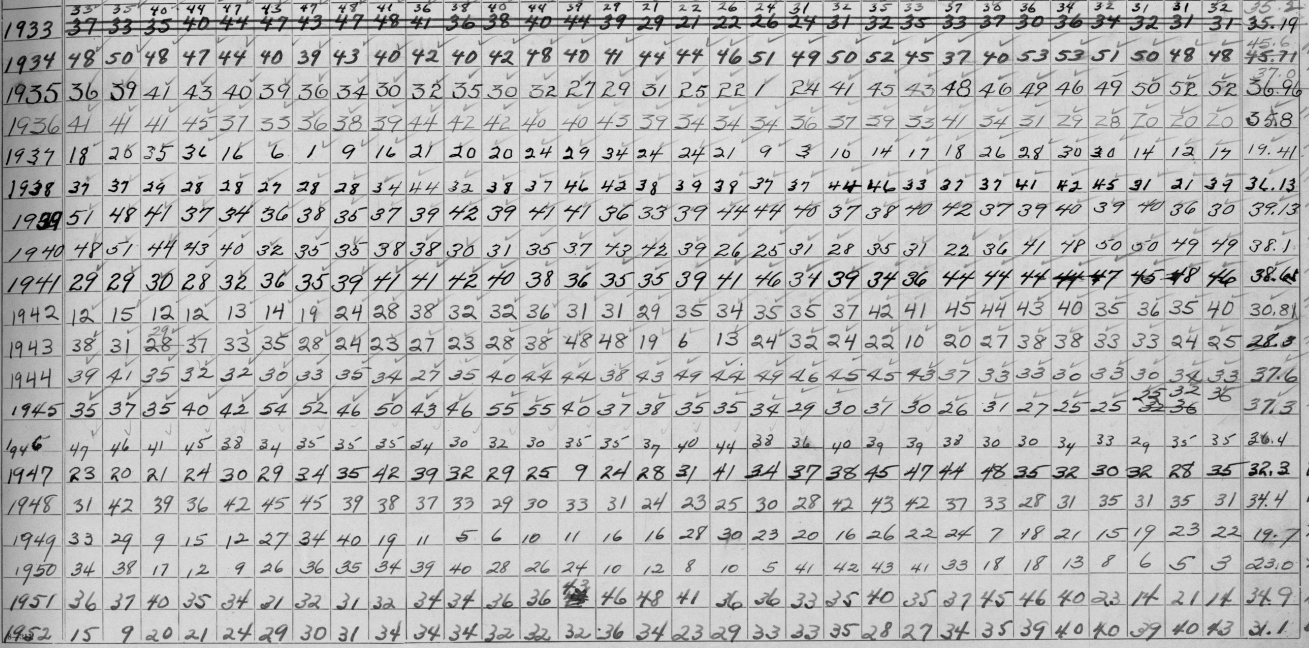 33 35 40 44 47 43 47 48 41 36 38 40 44 39 29 21 22 26 24 31 32 35 33 37 38 36 34 32 31 31 32 35.2
1933 37 33 35 40 44 47 43 47 48 41 36 38 40 44 39 29 21 22 26 24 31 32 35 33 37 30 36 34 32 31 31 35.19
45.6
1934 48 50 48 47 44 40 39 43 40 42 40 42 48 40 41 44 44 46 51 49 50 52 45 37 40 53 53 51 50 48 48 45.71
37.0
1935 36 39 41 43 40 39 36 34 30 32 35 30 32 27 29 31 25 22 1 24 41 45 43 48 46 49 46 49 50 52 52 36.96
1936 41 41 41 45 37 33 36 38 39 44 42 42 40 40 45 39 34 34 34 36 37 39 33 41 34 31 29 28 20 20 20 35.8
1937 18 28 35 36 16 6 1 9 16 21 20 20 24 29 34 24 24 21 9 3 10 14 17 18 26 28 30 30 14 12 17 19.41
1938 37 37 29 28 28 27 28 28 34 44 32 38 37 46 42 38 39 38 37 37 44 46 33 37 37 41 42 45 31 21 39 36.13
1939 51 48 41 37 34 36 38 35 37 39 42 39 41 41 36 33 39 44 44 40 37 38 40 42 37 39 40 39 40 36 30 39.13
1940 48 51 44 43 40 32 35 35 38 38 30 31 35 37 43 42 39 26 25 31 28 35 31 22 36 41 48 50 50 49 49 38.1
1941 29 29 30 28 32 36 35 39 41 41 42 40 38 36 35 35 39 41 46 34 39 34 36 44 44 44 44 47 45 48 46
1942 12 15 12 12 13 14 19 24 28 38 32 32 36 31 31 29 35 34 35 35 37 42 41 45 44 43 40 35 36 35 40 30.81
29
1943 38 31 28 37 33 35 28 24 23 27 23 28 38 48 48 19 6 13 24 32 24 22 10 20 27 38 38 33 33 24 25 28.3
1944 39 41 35 32 32 30 33 35 34 27 35 40 44 44 38 43 49 44 49 46 45 45 43 37 33 33 30 33 30 34 33 37.6
32 36
1945 35 37 35 40 42 54 52 46 50 43 46 55 55 40 37 38 35 35 34 29 30 31 30 26 31 27 25 25 32 36 37.3
1946 47 46 41 45 38 34 35 35 35 34 30 32 30 35 35 37 40 44 38 36 40 39 39 38 30 30 34 33 29 35 35 36.4
1947 23 20 21 24 30 29 34 35 42 39 32 29 25 9 24 28 31 41 34 37 38 45 47 44 48 35 32 30 32 28 35 32.3
1948 31 42 39 36 42 45 45 39 38 37 33 29 30 33 31 24 23 25 30 28 42 43 42 37 33 28 31 35 31 35 31 34.4
1949 33 29 9 15 12 27 34 40 19 11 5 6 10 11 16 16 28 30 23 20 16 26 22 24 7 18 21 15 19 23 22 19.7
1950 34 38 17 12 9 26 36 35 34 39 40 28 26 24 10 12 8 10 5 41 42 43 41 33 18 18 13 8 6 5 3 23.0
43
1951 36 37 40 35 34 31 32 31 32 34 34 36 36 46 48 41 36 36 33 35 40 35 37 45 46 40 23 14 21 14 34.9
1952 15 9 20 21 24 29 30 31 34 34 34 32 32 32 36 34 23 29 33 33 35 28 27 34 35 39 40 40 39 40 43 31.1